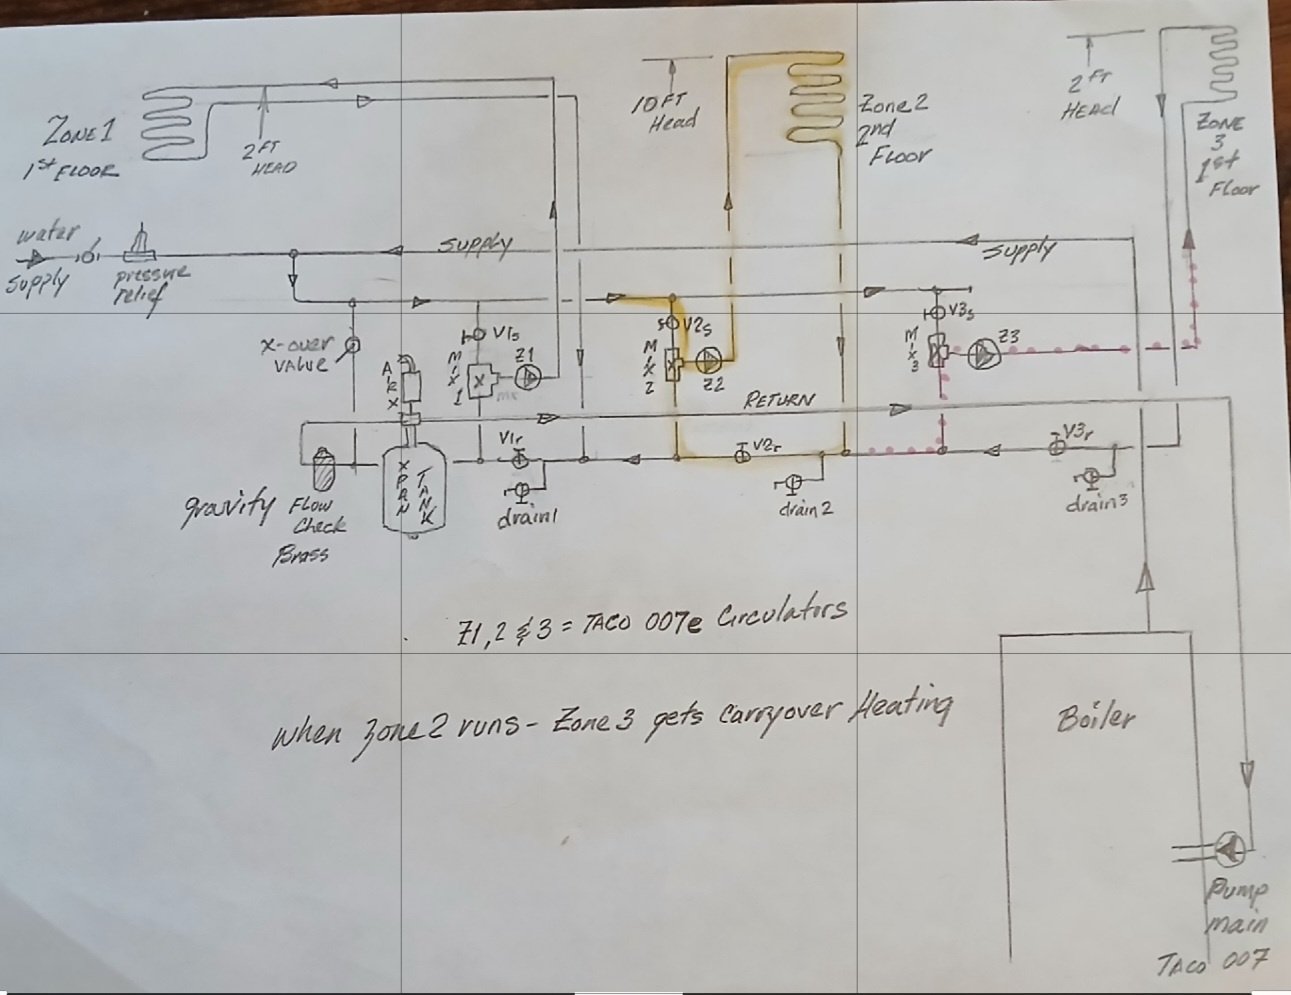 ZONE 1
1ST FLOOR
2 FT
HEAD
10 FT
Head
Zone 2
2nd
Floor
2 FT
HEAD
ZONE
3
1st
Floor
water
supply
pressure
relief
supply
supply
x-over
VALVE
AIR
X
MIX
1
V1s
Z1
mx
MIX
2
V2s
Z2
MIX
3
V3s
Z3
RETURN
V1r
drain1
V2r
drain 2
V3r
drain 3
XPAN
TANK
gravity Flow
Check
Brass
Z1, 2 & 3 = TACO 007e Circulators
when zone 2 runs - Zone 3 gets Carryover Heating
Boiler
Pump
main
TACO 007